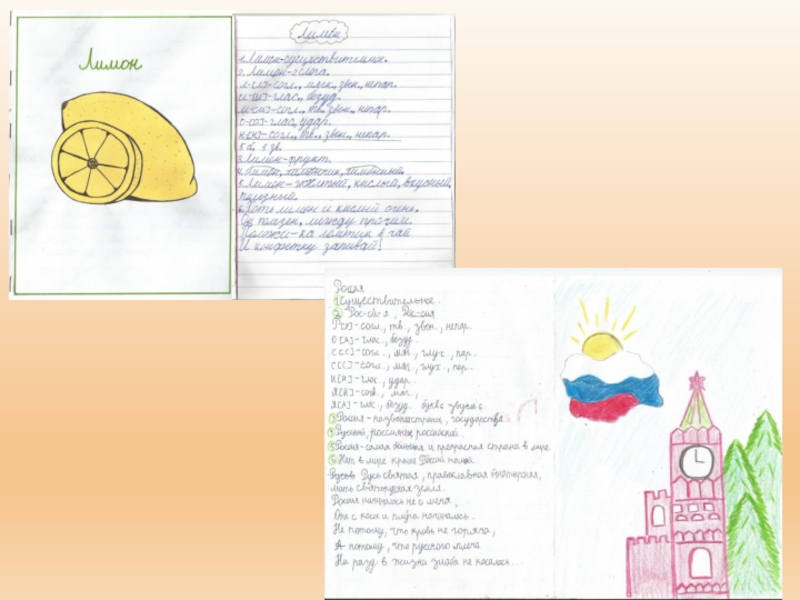 Лимон
Лимон
1. Лимон-существительное.
2. Лимон-2 слога.
л-[л']-согл., мягк., звон., непар.
и-[и]-глас., безуд.
м-[м]-согл., тв., звон., непар.
о-[о]-глас., удар.
н-[н]-согл., тв., звон., непар.
5 б., 5 зв.
3. Лимон-фрукт.
4. Лимон, лимончик, лимонный.
5. Лимон-жёлтый, кислый, вкусный,
полезный.
6. Хоть лимон и кислый очень.
Он полезен, между прочим.
Положи-ка ломтик в чай
И конфетку запивай!
Россия
1 Существительное.
2 Рос-си-я, Рос-сия
Р[р]-согл., тв., звон., непар.
О[а]-глас., безуд.
С[с']-согл., мяг., глух., пар.
С[с']-согл., мяг., глух., пар.
И[и]-глас., удар.
Я[й']-согл., мяг.,
Я[а]-глас., безуд. букв6 звуков 6
3 Россия-название страны, государства
4 Русский, россиянин, российский.
5 Россия-самая большая и прекрасная страна в мире.
6 Нет в мире краше Родины нашей.
Русь святая, православная богатырская,
мать святорусская земля.
Россия началась не с меча,
Она с косы и плуга началась.
Не потому, что кровь не горяча,
А потому, что русского плеча
Ни разу в жизни злоба не касалась...